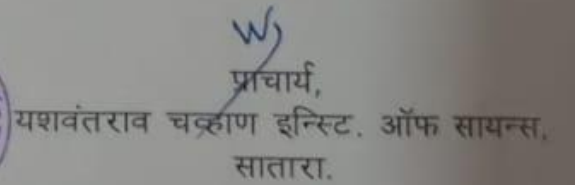 प्राचार्य,
यशवंतराव चव्हाण इन्स्टि. ऑफ सायन्स,
सातारा.